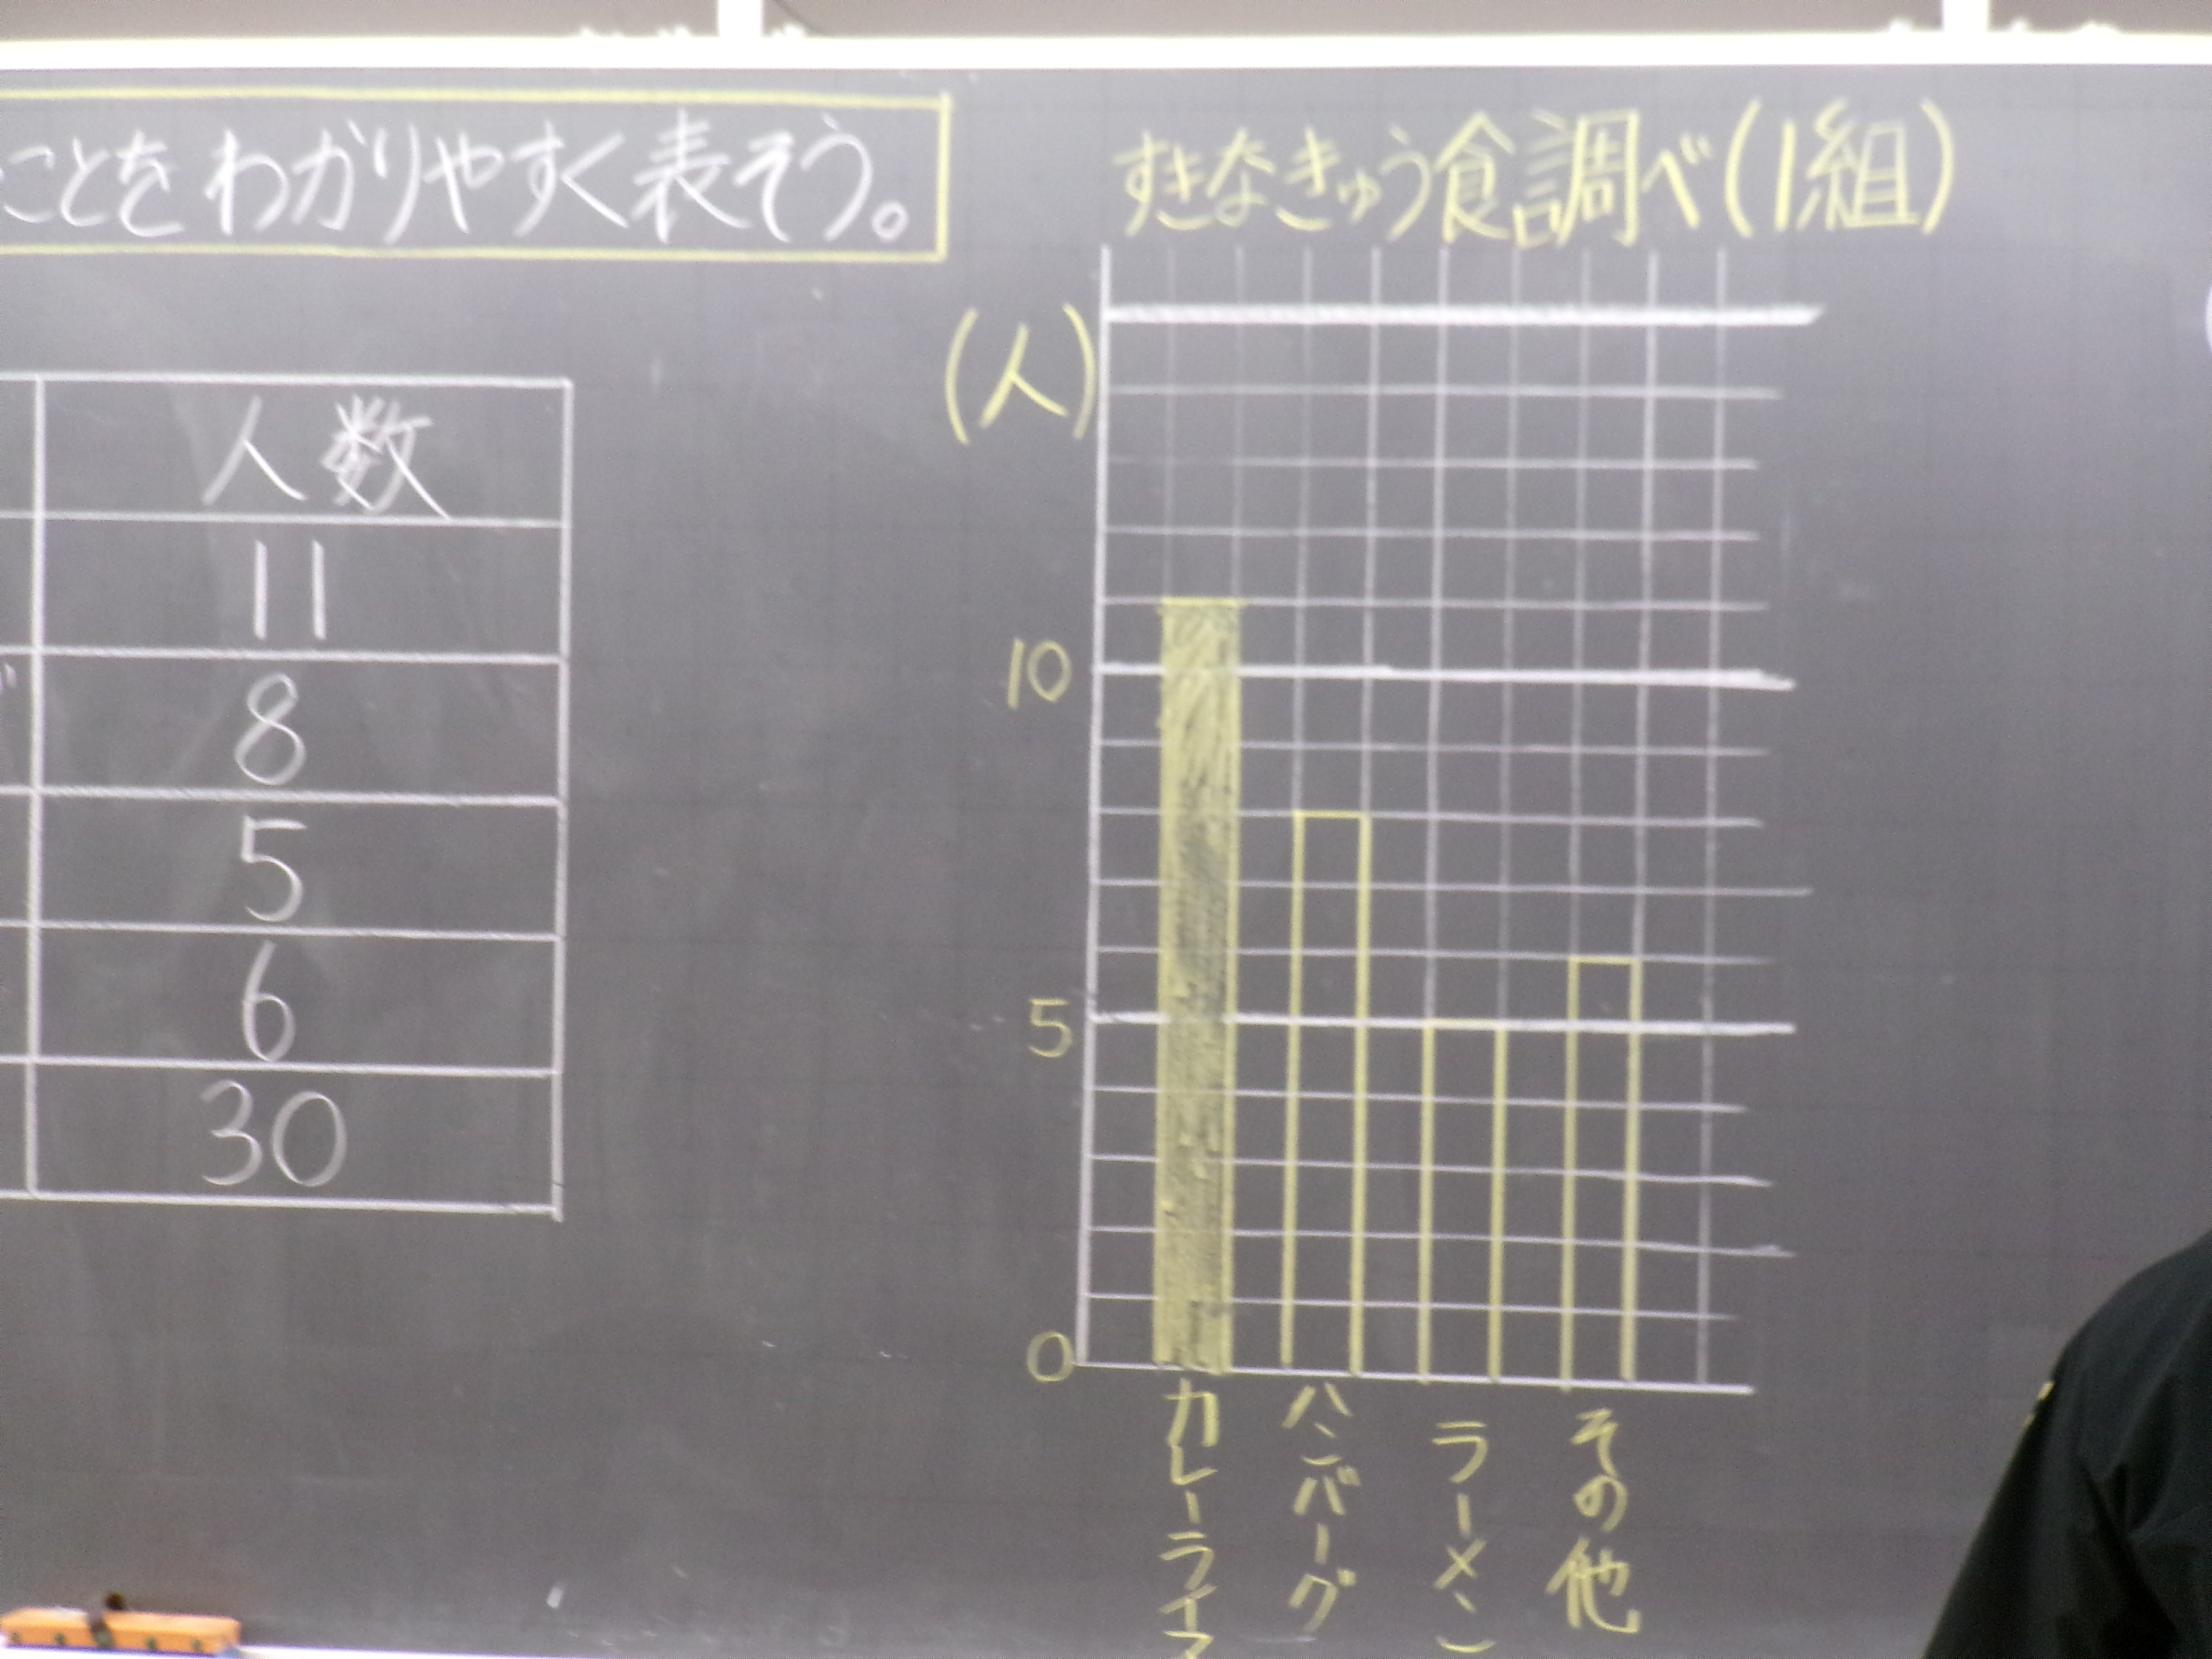 ことをわかりやすく表そう。
人数
11
8
5
6
30
すきなきゅう食調べ(1組)
(人)
10
5
0
カレーライス
ハンバーグ
ラーメン
その他